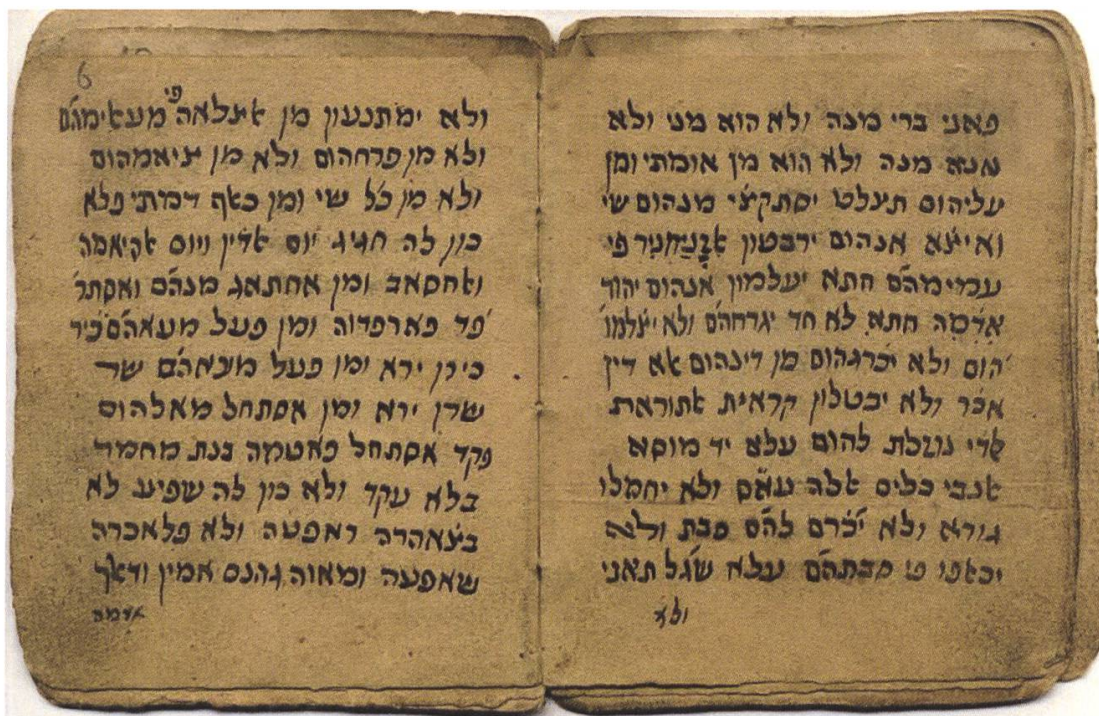 פאני ברי מנה ולא הוא מני ולא
אנא מנה ולא הוא מן אומתי ומן
עליהום תעלט יסתקצי מנהום שי
ואיצא אנהום ירבטון פי
עמימהם חתא יעלמון אנהום יהוד
אדמה חתא לא חד יגרחהם ולא יצלמו
הום ולא יכרגהום מן דינהום אא דין
אכר ולא יבטלון קראית אתוראת
נוזלת להום עלא יד מוסא
אנבי כלים אלה עאם ולא יחמלו
גורא ולא יכרם להם סבת ולא
יכאפו סבתהם עלא שגל תאני
ולא
6
ולא ימתנעון מן אצלאה פי מעאימהם
ולא מן פרחהום ולא מן ציאמהום
ולא מן כל שי ומן כאף דמתי פלא
כון לה חגיג יום אדין ויום אקיאמה
ואחסאב ומן אחתאג מנהם ואסתר
פד פארפדוה ומן פעל מעאהם כיר
כירן ירא ומן פעל מעאהם שר
שרן ירא ומן אסתחל מאלהום
פקד אסתחל פאטמה בנת מחמד
בלא עקד ולא כון לה שפיע לא
בצאהרה ראפטה ולא פלאכרה
שאפעה ומאוה גהנם אמין ודאך
אדמה